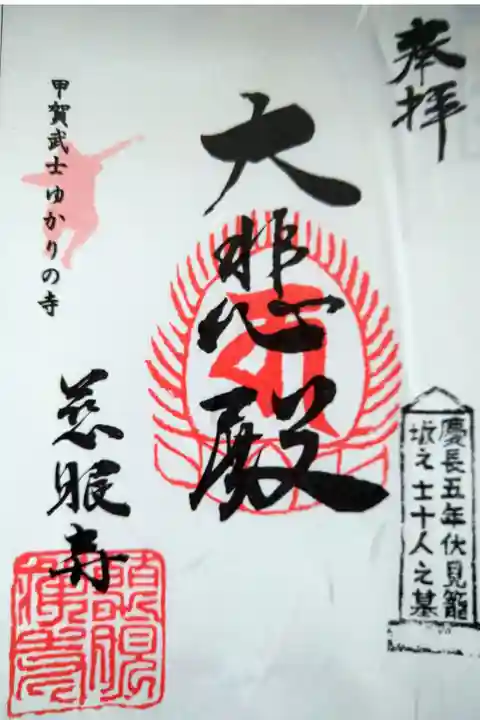 奉拝
慶長五年伏見籠
城之士十人之墓
大悲殿
甲賀武士ゆかりの寺
慈眼寺